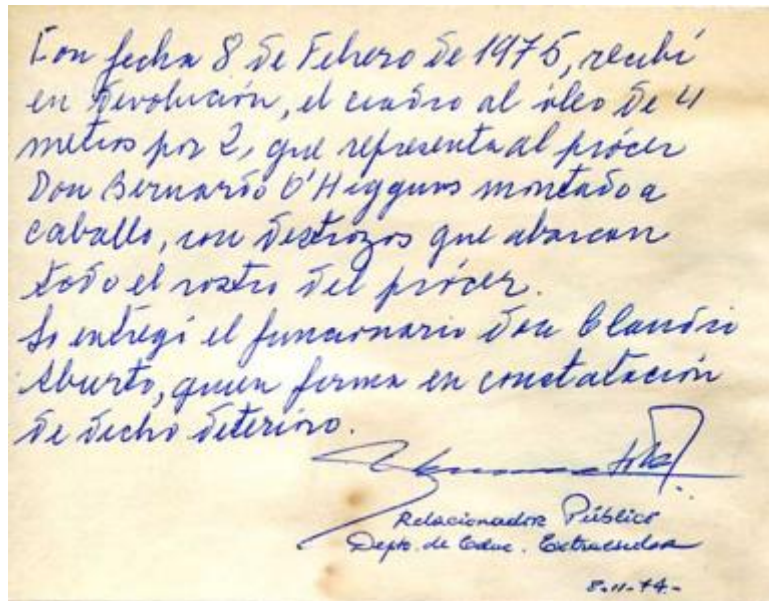 Con fecha 8 de Febrero de 1975, recibí
en devolución, el cuadro al óleo de 4
metros por 2, que representa al prócer
Don Bernardo O'Higgins montado a
caballo, con destrozos que abarcan
todo el rostro del prócer.
Lo entregó el funcionario don Claudio
Aburto, quien firma en constatación
de dicho deterioro.
Relacionador Público
Depto. de Educ. Extraescolar
8-II-74.-